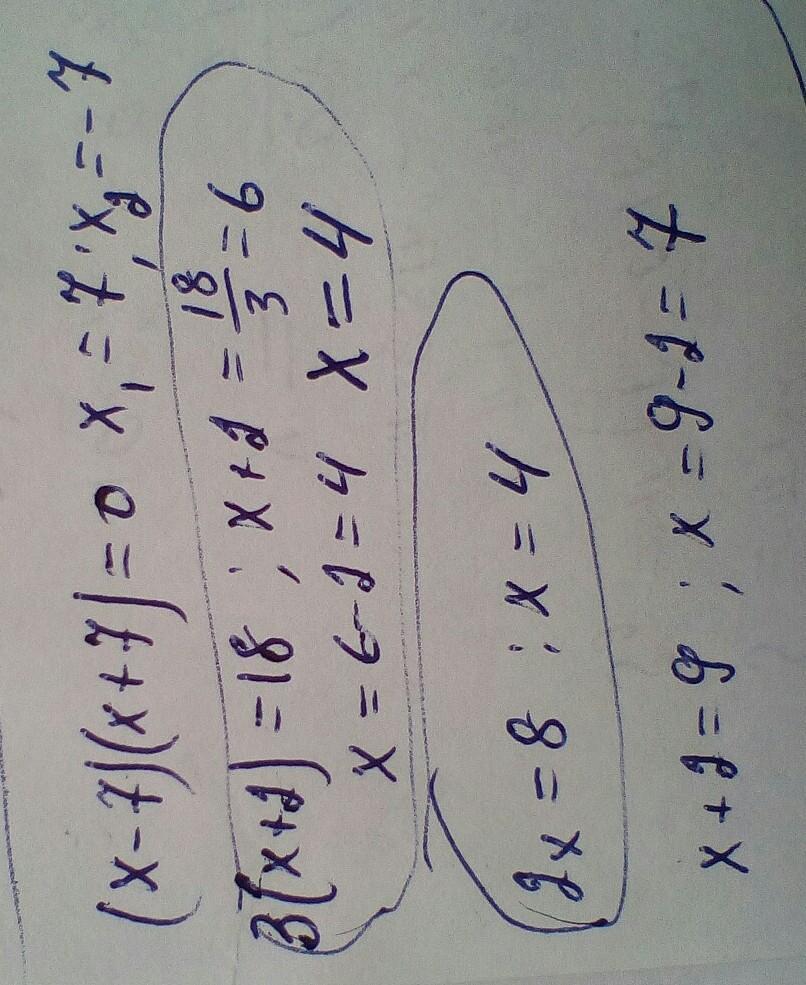 (x-7)(x+7)=0 x₁=7; x₂=-7
3(x+2)=18 ; x+2=18/3=6
x=6-2=4 x=4
2x=8 ; x=4
x+2=9 ; x=9-2=7